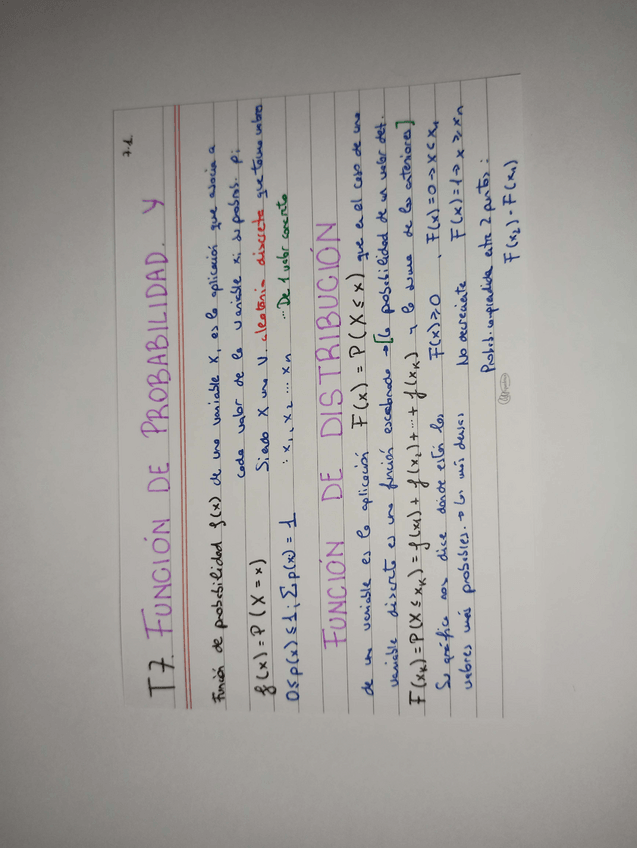 7.1.
T7. FUNCIÓN DE PROBABILIDAD. Y
Función de probabilidad f(x) de una variable X, es la aplicación que asocia a
cada valor de la variable xi su probab. pi
f(x) = P(X = x) Siendo X una V. aleatoria discreta que toma valores
0 ≤ p(x) ≤ 1 ; Σp(x) = 1 : x1, x2 ... xn ...De 1 valor concreto
FUNCIÓN DE DISTRIBUCIÓN
de una variable es la aplicación F(x) = P(X ≤ x) que en el caso de una
variable discreta es una función escalonada → [la probabilidad de un valor det.
F(xk) = P(X ≤ xk) = f(x1) + f(x2) + ... + f(xk) y la suma de los anteriores]
Su gráfica nos dice donde están los F(x) ≥ 0 , F(x) = 0 → x < x1
valores más probables. → los más densos No decreciente F(x) = 1 → x ≥ xn
Probab. entre 2 puntos:
F(x2) - F(x1)